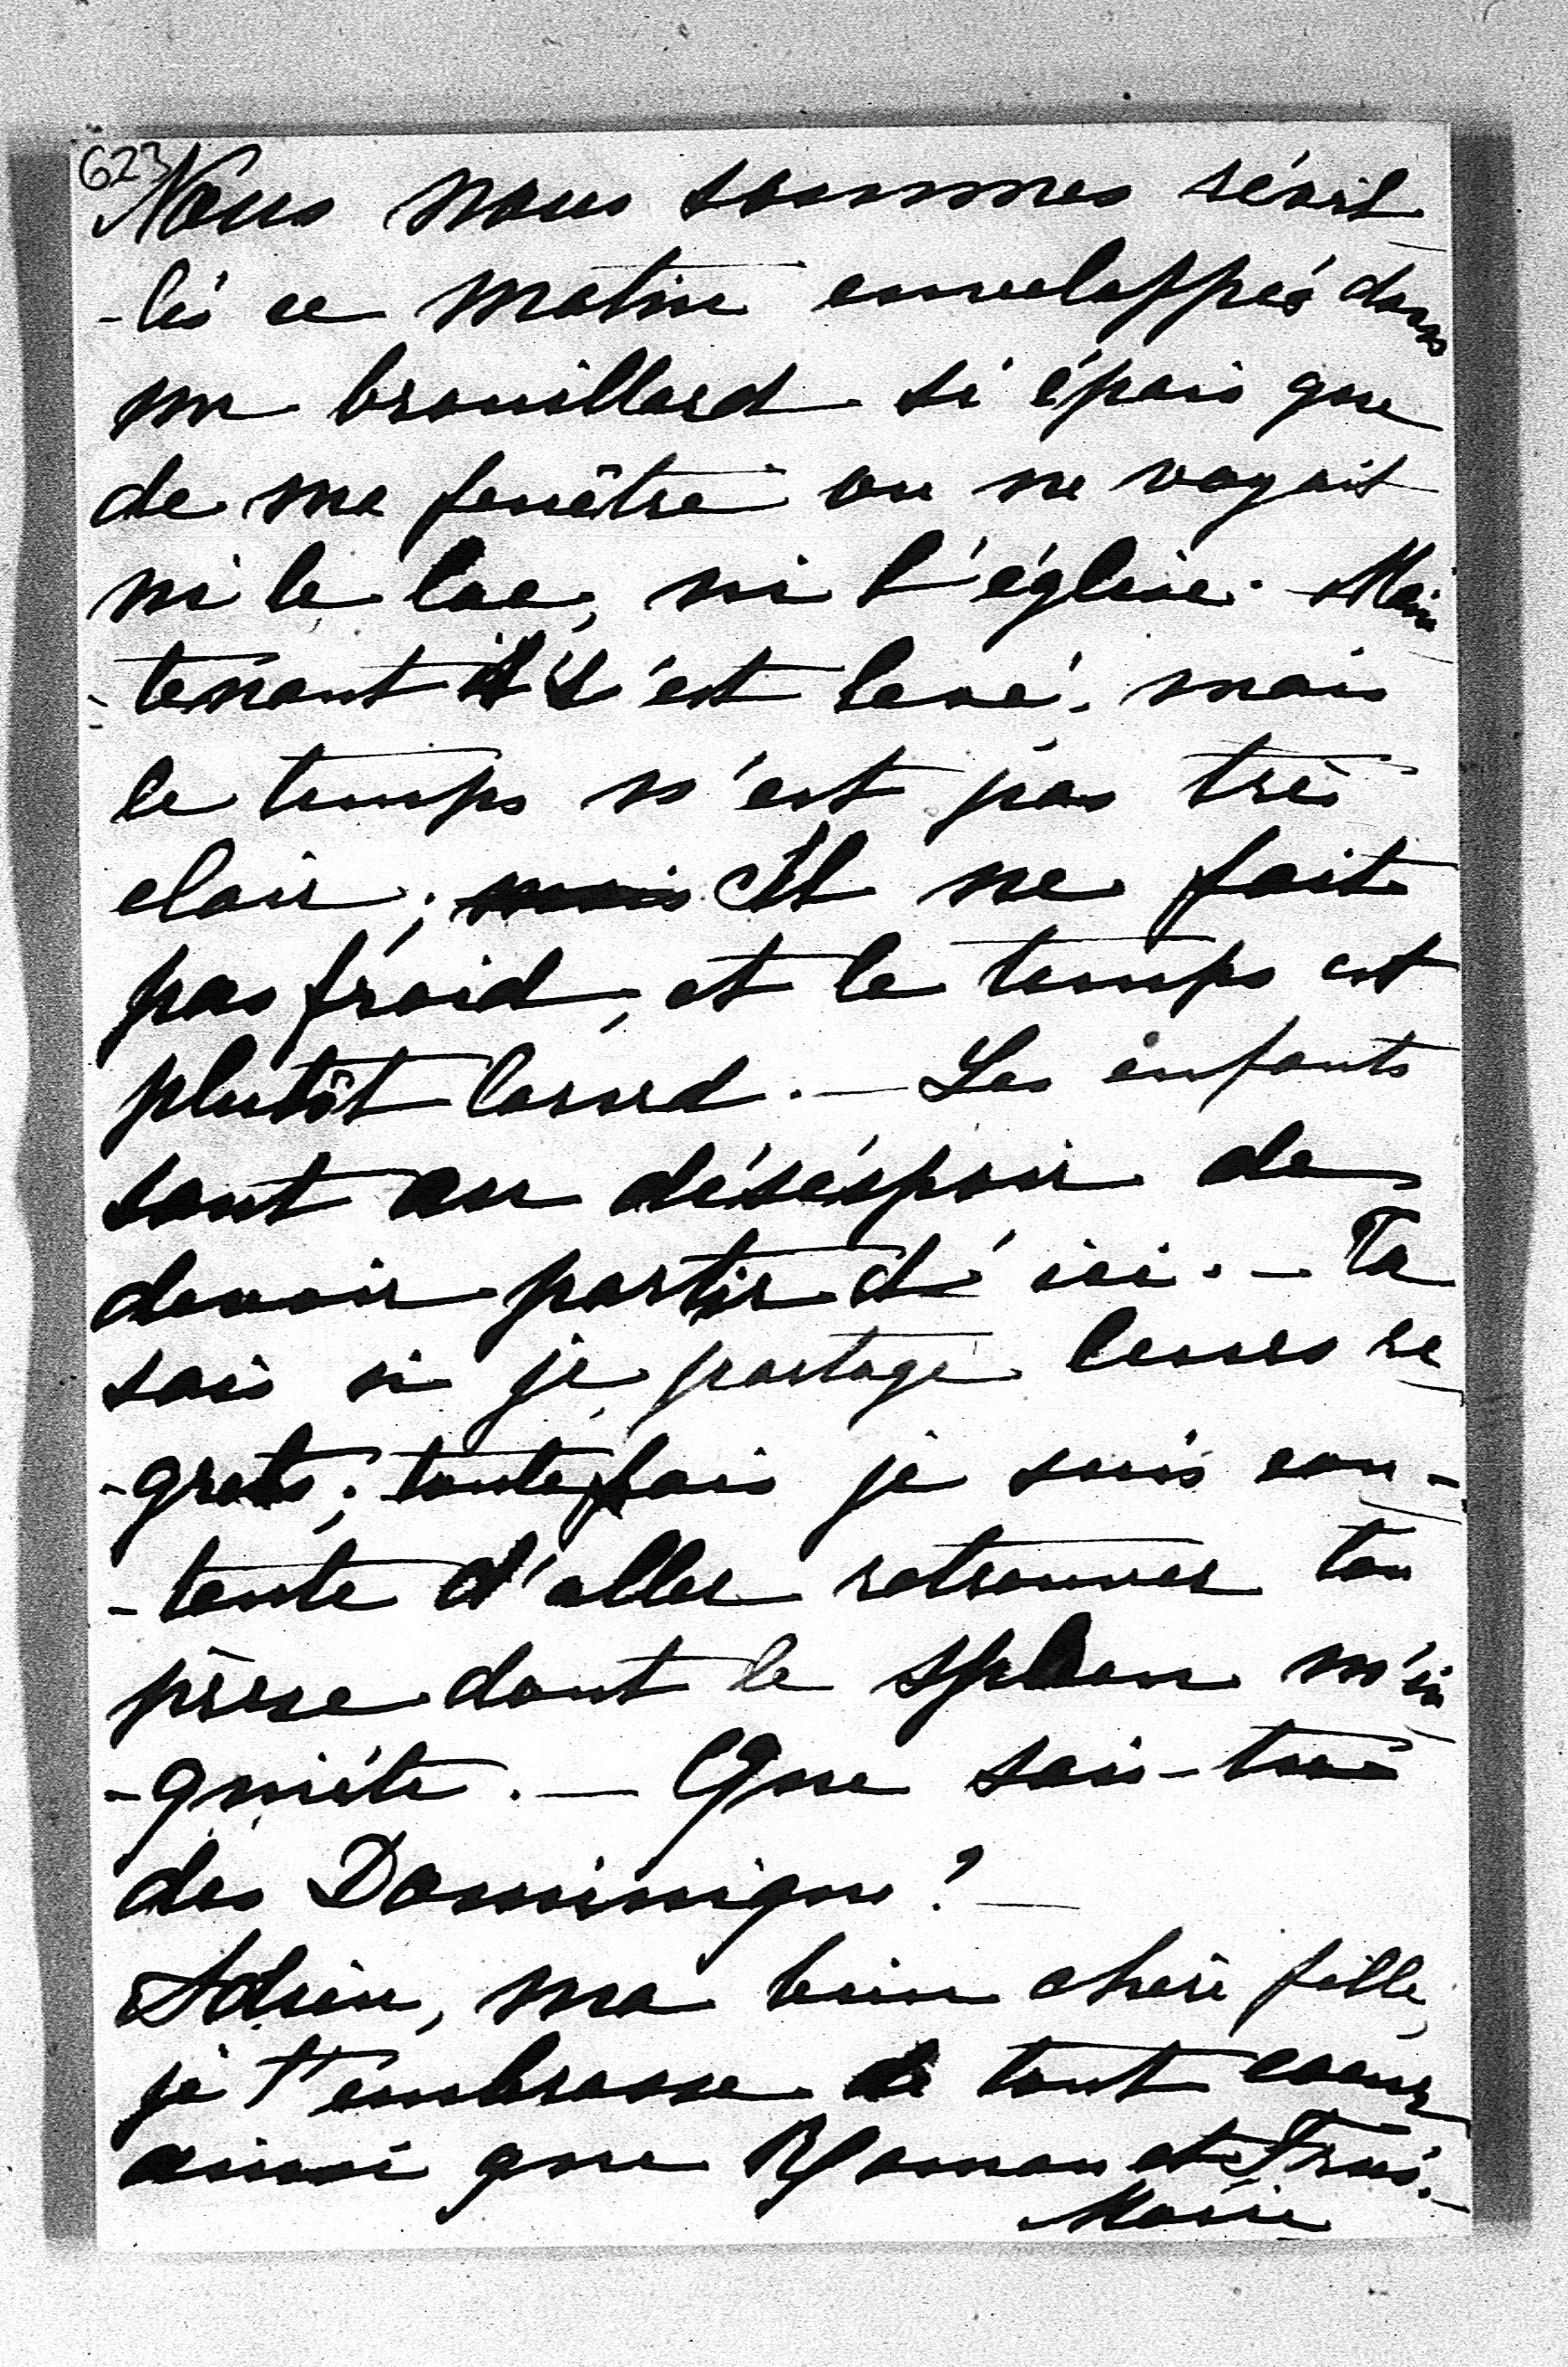 623
Nous nous sommes réveil
-lés ce matin enveloppés dans
un brouillard si épais que
de ma fenêtre on ne voyait
ni le lac, ni l'église. Main
-tenant il s'est levé, mais
le temps n'est pas très
clair; mais Il ne fait
pas froid, et le temps est
plutôt lourd. — Les enfants
sont au désespoir de
devoir partir d'ici. — Tu
sais si je partage leurs re
-grets; toutefois je suis con-
-tente d'aller retrouver ton
père dont le spleen m'in
-quiète. — Que sais-tu
des Dominique? —
Adieu, ma bien chère fille,
je t'embrasse de tout coeur
ainsi que Roman et
Marie